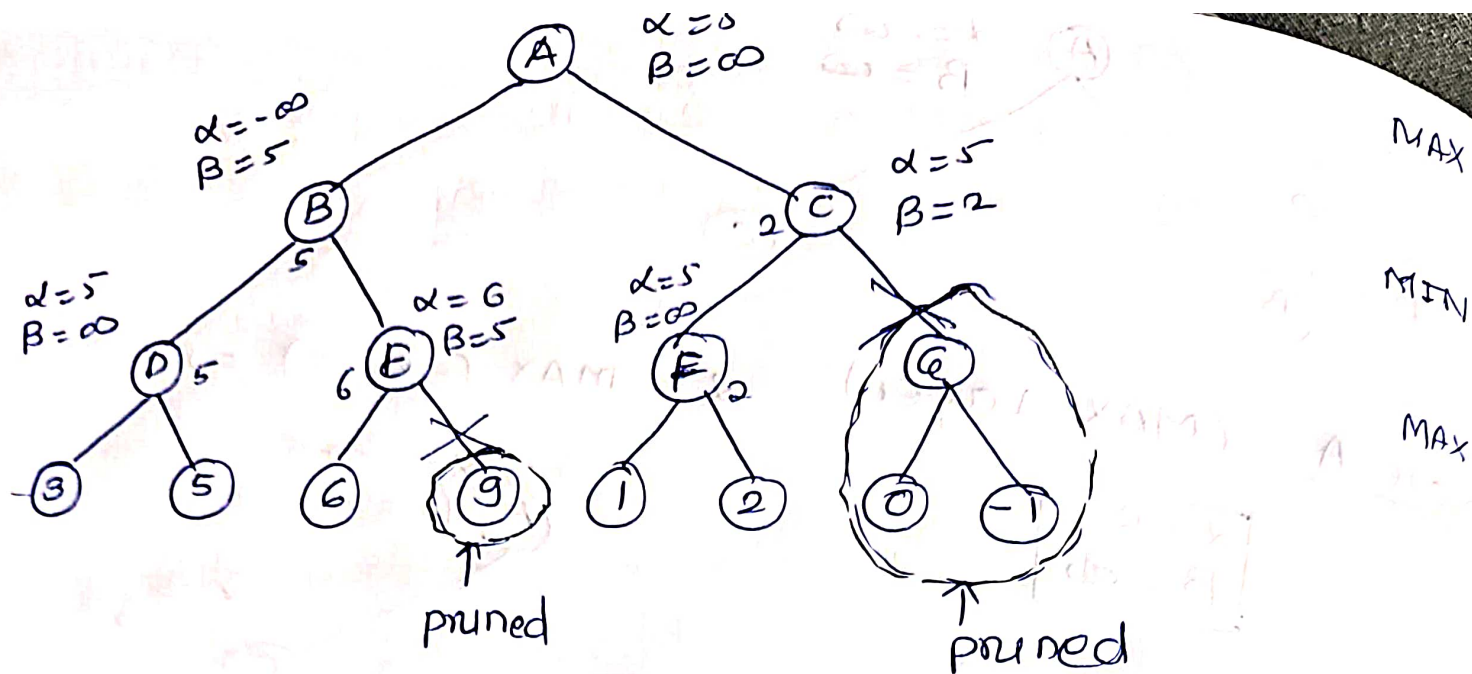 A
α = 5
β = ∞
MAX
α = -∞
β = 5
B
5
α = 5
β = 2
2
C
MIN
α = 5
β = ∞
D
5
α = 6
β = 5
6
E
α = 5
β = ∞
F
2
G
MAX
3
5
6
9
1
2
0
-1
pruned
pruned